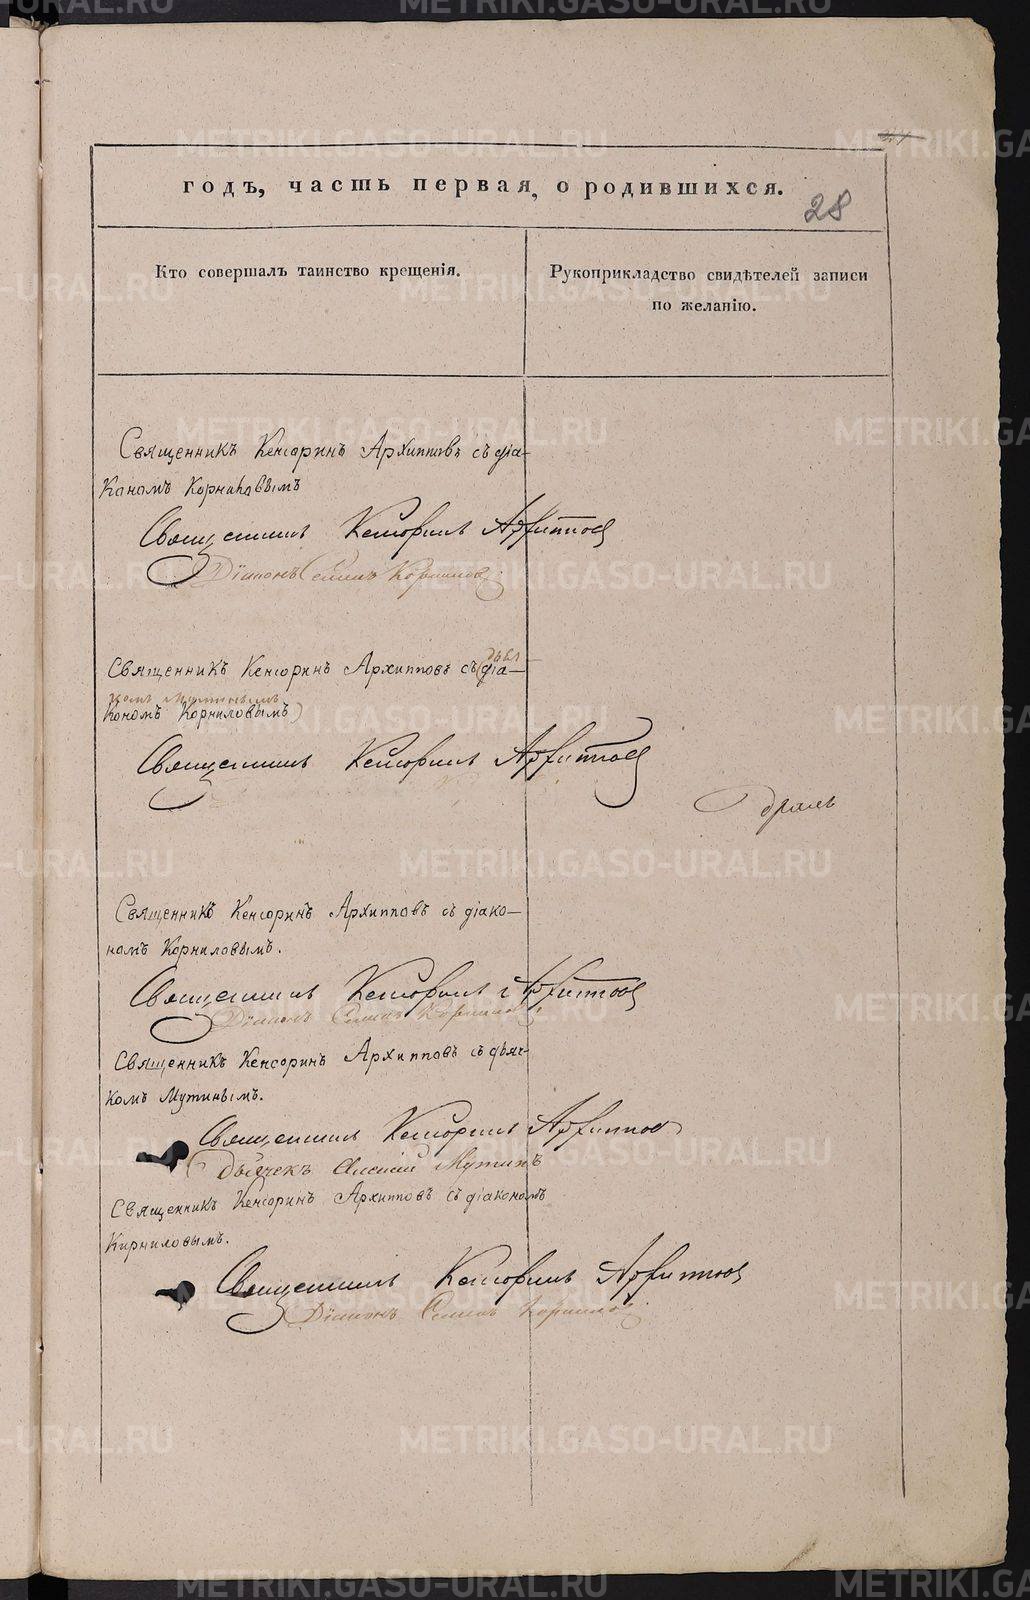 годъ, часть первая, о родившихся.
28
Кто совершалъ таинство крещенія.
Рукоприкладство свидѣтелей записи
по желанію.
Священникъ Кенсоринъ Архипповъ съ діа-
кономъ Корниловымъ
Священникъ Кенсоринъ Архипповъ
Діаконъ Семенъ Корниловъ
Священникъ Кенсоринъ Архипповъ съ (діа-
комъ Мутинымъ
кономъ Корниловымъ)
Священникъ Кенсоринъ Архипповъ
Священникъ Кенсоринъ Архипповъ съ діако-
номъ Корниловымъ.
Священникъ Кенсоринъ Архипповъ
Діаконъ Семенъ Корниловъ
Священникъ Кенсоринъ Архипповъ съ дьяч-
комъ Мутинымъ.
Священникъ Кенсоринъ Архипповъ
Дьячекъ Алексій Мутинъ
Священникъ Кенсоринъ Архипповъ съ діакономъ
Корниловымъ.
Священникъ Кенсоринъ Архипповъ
Діаконъ Семенъ Корниловъ
METRIKI.GASO-URAL.RU